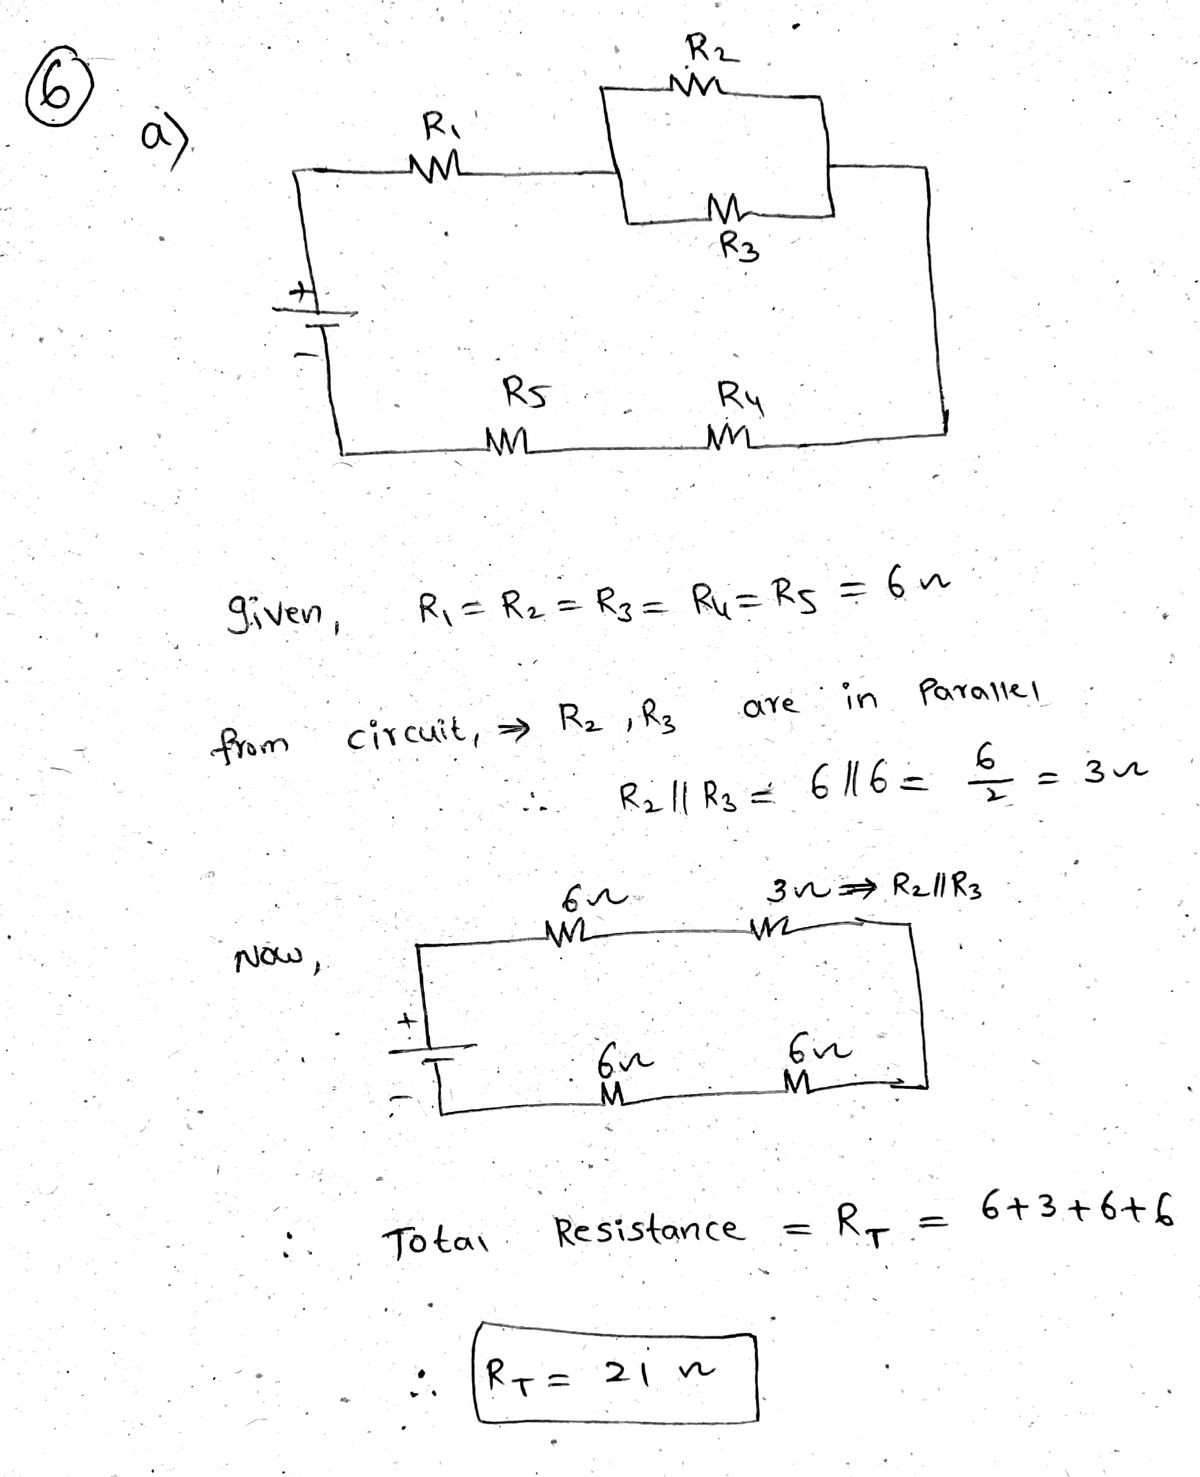 6
a)
R2
R1
R3
+
-
R5 R4
given, R1 = R2 = R3 = R4 = R5 = 6 Ω
from circuit, ⇒ R2 , R3 are in Parallel
∴ R2 || R3 = 6 || 6 = 6/2 = 3Ω
6Ω 3Ω ⇒ R2 || R3
Now,
+
-
6Ω 6Ω
∴ Total Resistance = RT = 6+3+6+6
∴ RT = 21 Ω